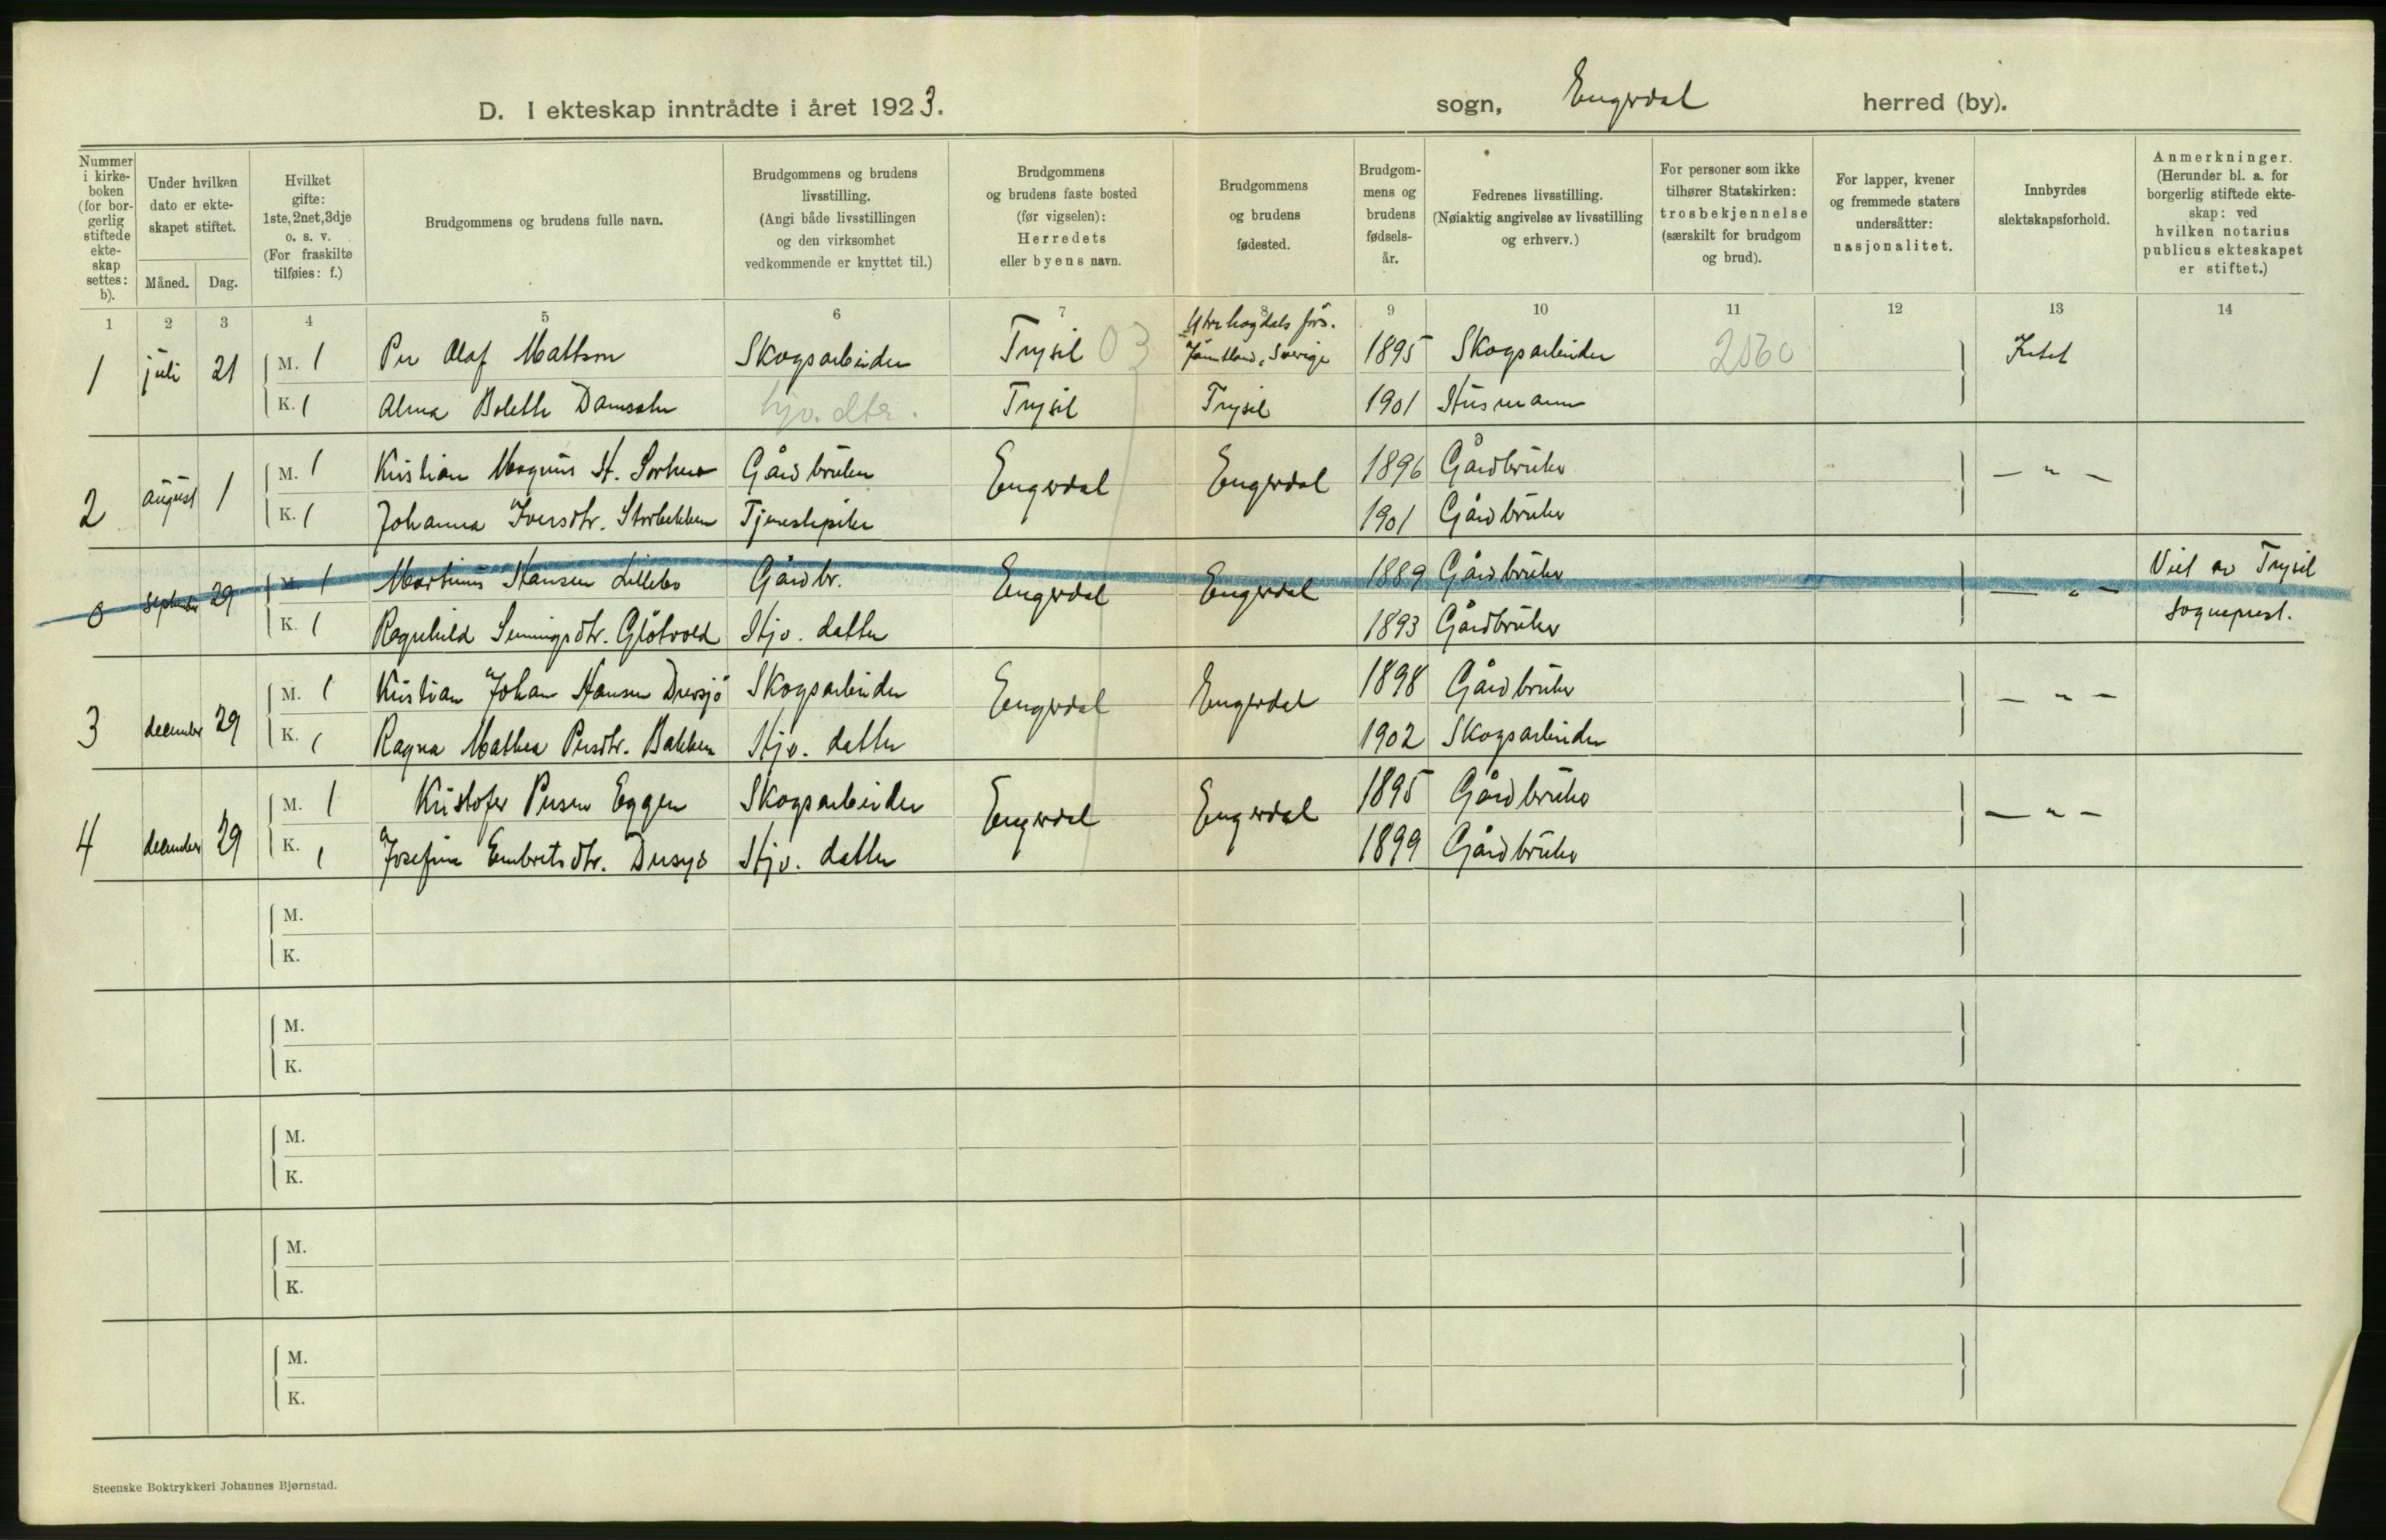 D. I ekteskap inntrådte i året 1923.
sogn, Engerdal herred (by).
Nummer i kirke-boken (for bor-gerlig stiftede ekte-skap settes: b).
Under hvilken dato er ekte-skapet stiftet.
Måned. Dag.
Hvilket gifte: 1ste, 2net, 3dje o. s. v. (For fraskilte tilføies: f.)
Brudgommens og brudens fulle navn.
Brudgommens og brudens livsstilling. (Angi både livsstillingen og den virksomhet vedkommende er knyttet til.)
Brudgommens og brudens faste bosted (før vigselen): Herredets eller byens navn.
Brudgommens og brudens fødested.
Brudgom-mens og brudens fødsels-år.
Fedrenes livsstilling. (Nøiaktig angivelse av livsstilling og erhverv.)
For personer som ikke tilhører Statskirken: trosbekjennelse (særskilt for brudgom og brud).
For lapper, kvener og fremmede staters undersåtter: nasjonalitet.
Innbyrdes slektskapsforhold.
Anmerkninger. (Herunder bl. a. for borgerlig stiftede ekte-skap: ved hvilken notarius publicus ekteskapet er stiftet.)
1 2 3 4 5 6 7 8 9 10 11 12 13 14
1 juli 21 M. 1 Per Olaf Mattson Skogsarbeider Trysil 03 Jämtland, Sverige 1895 Skogsarbeider 2060 Intet
K. 1 Alma Bolette Trysil Trysil 1901 Husmann
2 august 1 M. 1 Kristian Magnus H. Gårdbruker Engerdal Engerdal 1896 Gårdbruker — " —
K. 1 Johanna Iversdtr. Storbekken Tjenestepike 1901 Gårdbruker
0 september 29 M. 1 Martinus Hansen Lillebo Gårdbr. Engerdal Engerdal 1889 Gårdbruker — " — Viet av Trysil
K. 1 Ragnhild Glötvold Hjv. datter 1893 Gårdbruker sogneprest.
3 december 29 M. 1 Kristian Johan Hansen Drevsjö Skogsarbeider Engerdal Engerdal 1898 Gårdbruker — " —
K. 1 Ragna Mathea Persdtr. Bakken Hjv. datter 1902 Skogsarbeider
4 december 29 M. 1 Kristofer Persen Eggen Skogsarbeider Engerdal Engerdal 1895 Gårdbruker — " —
K. 1 Josefine Embretsdtr. Drevsjö Hjv. datter 1899 Gårdbruker
M.
K.
M.
K.
M.
K.
M.
K.
M.
K.
Steenske Boktrykkeri Johannes Bjørnstad.